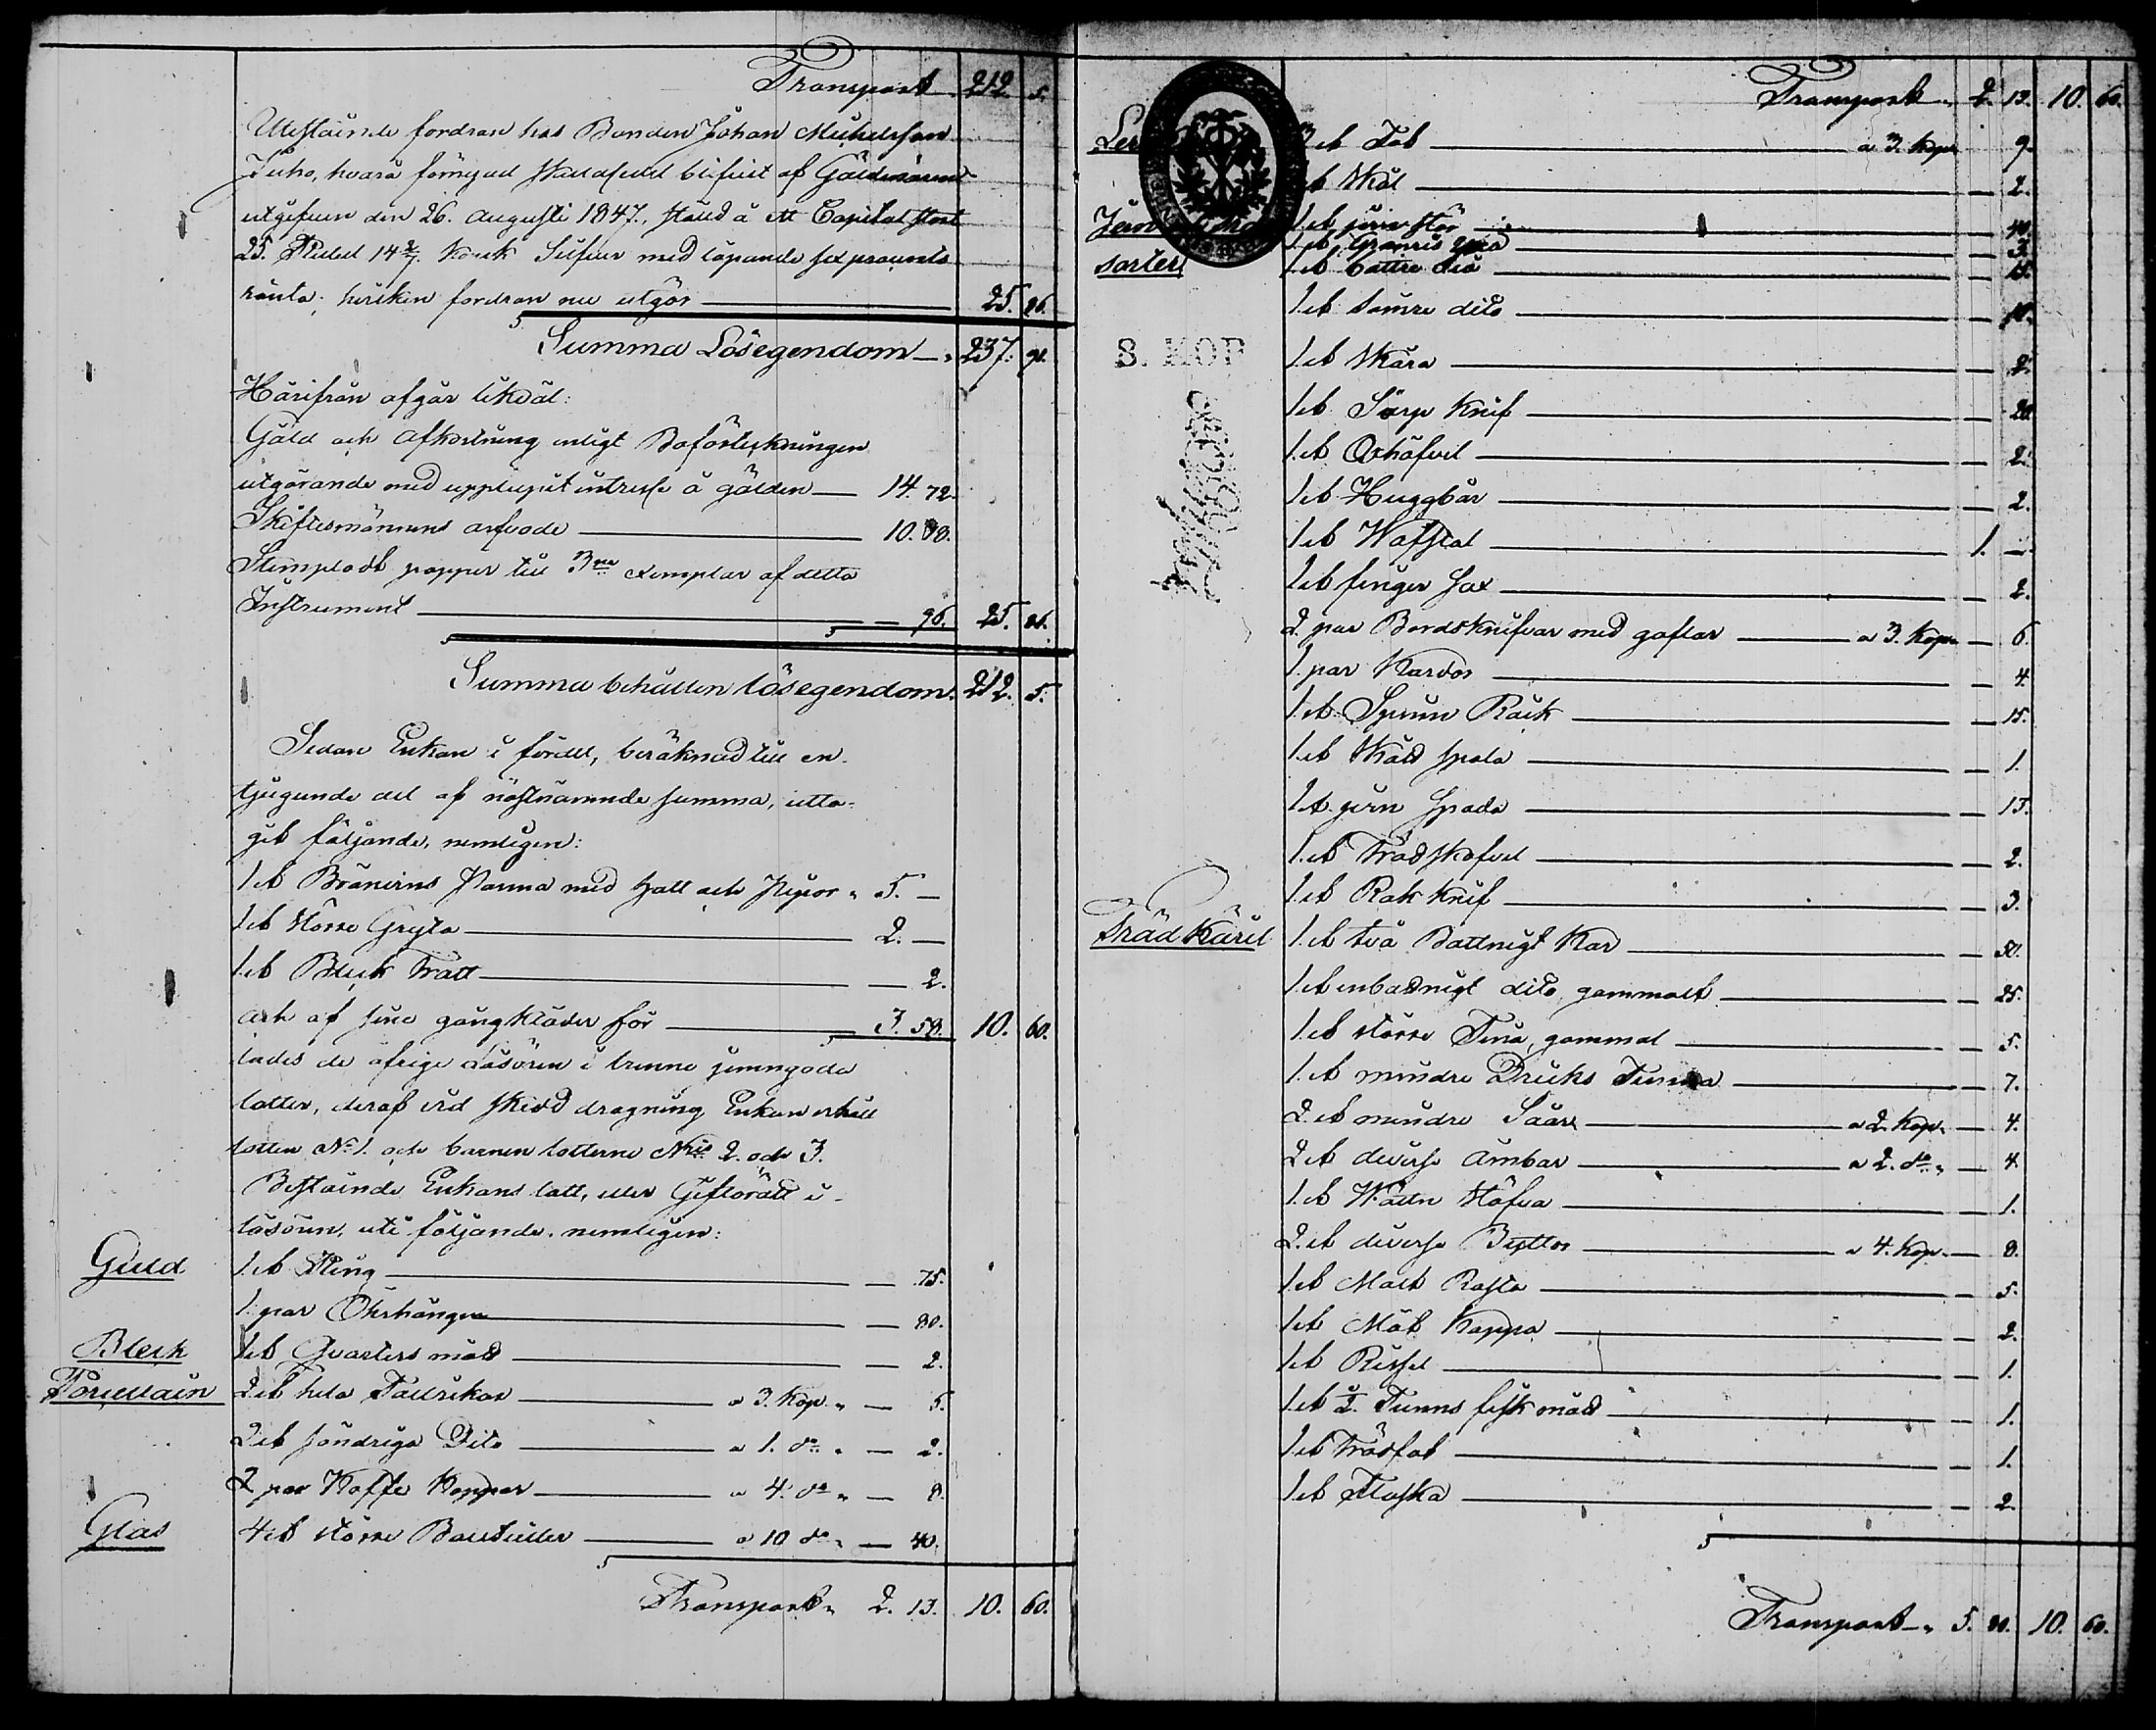 Transport 212. 5.
Utestående fordran hos Bonden Johan Michelsson
Juho, hvarå förnyad skuldsedel blifvit af Gäldenären
utgifven den 26. Augusti 1847., ställd å ett Capital stort
25. Rubel 14 2/7. Kopek Silfver med löpande sex procents
ränta; hvilken fordran nu utgör 25. 86.
Summa Lösegendom 237. 91.
Härifrån afgår likväl:
Gäld och afkortning enligt Boförteckningen
utgörande med upplupit intresse å gälden 14. 72.
Skiftesmännens arfvode 10.
Stempladt papper till 3ne exemplar af detta
Instrument 96. 25. 86.
Summa behållen lösegendom. 212. 5.
Sedan Enkan i fördel, beräknad till en
tjugunde del af nästnämnde summa, utta-
git följande, nemligen:
1. st Bränvins Panna med hatt och Pipor 5. —
1. st större Gryta 2. —
1. st Bleck Tratt 2.
och af sine gångkläder för 3. 58. 10. 60.
lades de öfrige Lösören i trenne jemngoda
lotter, deraf vid skedd dragning Enkan erhöll
lotten No 1. och barnen lotterne Nris 2. och 3.
Bestående Enkans lott, eller Giftorätt i
lösören, uti följande, nemligen:
Guld
1. st Ring 75.
1. par Örhängen 80.
Bleck
1. st Qvarters mått 2.
Porcellain
2. st hela Tallrikar a 3. Kop. 6.
2. st söndriga Dito a 1. do 2.
2 par Kaffe Koppar a 4. do 8.
Glas
4. st större Bouteiller a 10 do 40.
Transport 2. 13. 10. 60.
Transport 2. 13. 10. 60.
3. st Fat a 3. Kop. 9.
1. st Skål 2.
Jern
sorter
1. st jern stör 40.
1. st
1. st bättre Lia 15.
1. st sämre dito 10.
8. KOP
1. st Skära 2.
1. st Sörp Knif 20.
1. st 2.
1. st Huggbår 2.
1. st Wäfstol 1. —
1. st finger sax 2.
2. par Bordsknifvar med gaflar a 3. Kop. 6.
1. par Kardor 4.
1. st Spinn Råck 15.
1. st Wäfsspola 1.
1. st jern Spada 15.
1. st Trädskofvel 2.
1. st Rak Knif 3.
Träd Käril
1. st två Bottnigt Kar 50.
1. st enbottnigt dito, gammalt 25.
1. st större Tina, gammal 5.
1. st mindre Dricks Tunna 7.
2. st mindre Såar a 2. Kop. 4.
2. st diverse Ämbar a 2. do 4.
1. st Watten Stäfva 1.
2. st diverse Byttor a 4. Kop. 8.
1. st 5.
1. st Mått Kappa 2.
1. st Rissel 1.
1. st 1/2. Tunns fisk mått 1.
1. st Trädfat 1.
1. st Flaska 2.
Transport 5. 80. 10. 60.